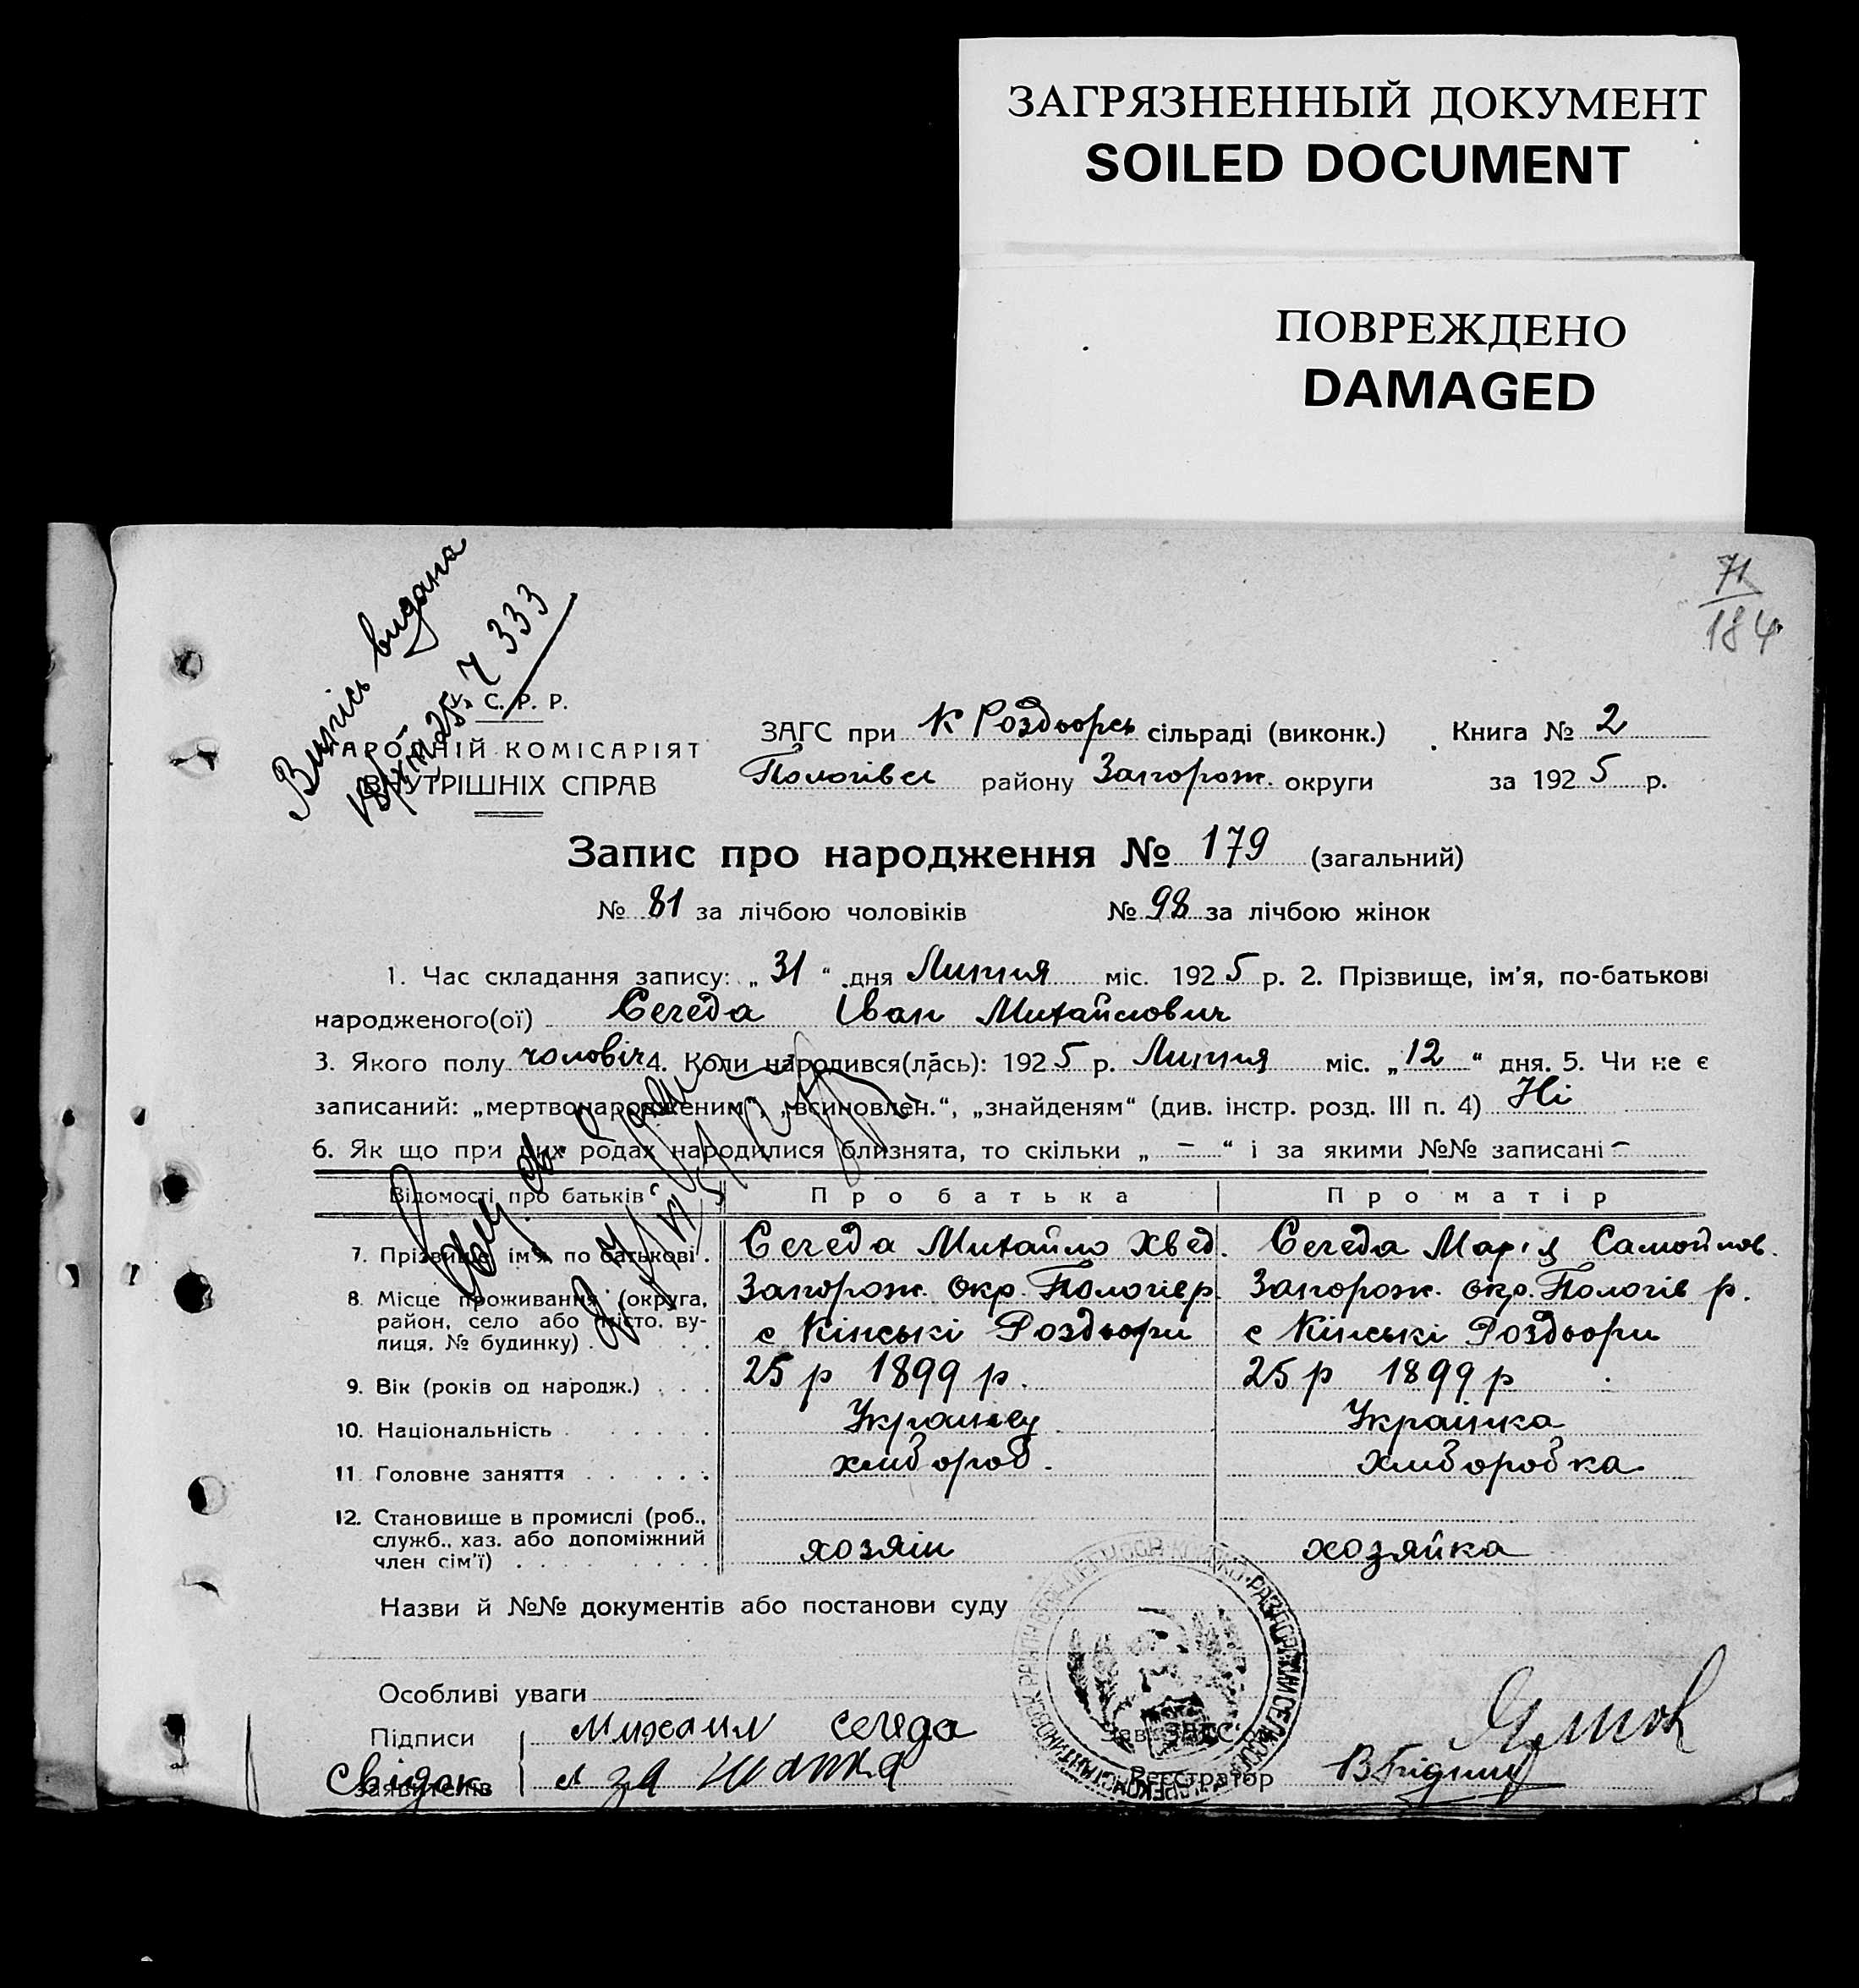 ЗАГРЯЗНЕННЫЙ ДОКУМЕНТ
SOILED DOCUMENT
ПОВРЕЖДЕНО
DAMAGED
71
184
Випись видана
25 333
У. С. Р. Р.
НАРОДНІЙ КОМІСАРІЯТ
ВНУТРІШНІХ СПРАВ
ЗАГС при К Роздорсь сільраді (виконк.) Книга № 2
Пологівсь району Запорож. округи за 1925 р.
Запис про народження № 179 (загальний)
№ 81 за лічбою чоловіків № 98 за лічбою жінок
1. Час складання запису: „31“ дня Липня міс. 1925 р. 2. Прізвище, ім’я, по-батькові
народженого(ої) Середа Іван Михайлович
3. Якого полу чоловіч 4. Коли народився(лась): 1925 р. Липня міс. „12“ дня. 5. Чи не є
записаний: „мертвонародженим“, „всиновлен.“, „знайденям“ (див. інстр. розд. III п. 4) Ні
6. Як що при цих родах народилися близнята, то скільки „ – “ і за якими №№ записані –
Відомості про батьків Про батька Про матір
7. Прізвище ім’я по батькові . Середа Михайло Хвед. Середа Марія Самойлов.
8. Місце проживання (округа, район, село або місто, вулиця, № будинку) . Запорож. окр. Пологів р. Запорож. окр. Пологів р.
с Кінські Роздори с Кінські Роздори
9. Вік (років од народж.) . . . 25 р 1899 р. 25 р 1899 р
10. Національність Українец Українка
11. Головне заняття хлібороб. хліборобка
12. Становище в промислі (роб., служб., хаз. або допоміжний член сім’ї) хозяін хозяйка
Назви й №№ документів або постанови суду
Особливі уваги
Підписи Михаил Середа Зав. ЗАГС’ом
заявителів Свідок Реєстратор